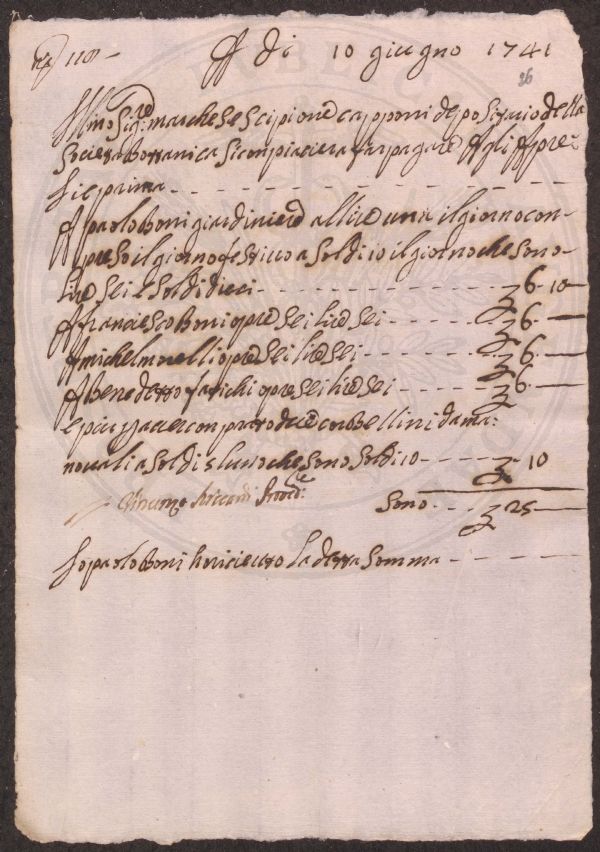 118 —
A di 10 giugno 1741
26
Ill.mo Sig.re marchese scipione capponi depositario della
Societa Bottanica si conpiacera far pagare A gli A pre=
sie prima
A paolo Boni giardiniere a llire una il giorno con=
preso il giorno festivo a soldi 10 il giorno che sono
lire sei e soldi dieci 6 10 —
A francesco Boni opre sei lire sei 6 —
A michel morelli opre sei lire sei 6 —
A benedetto farichi opre sei lire sei 6 —
e piu p aver conprato due corbellini da ma:
novali a soldi 5 luno che sono soldi 10 10
Vincenzo Riccardi Proved.re
Sono 25 —
Io paolo Boni ho riceuto la detta somma